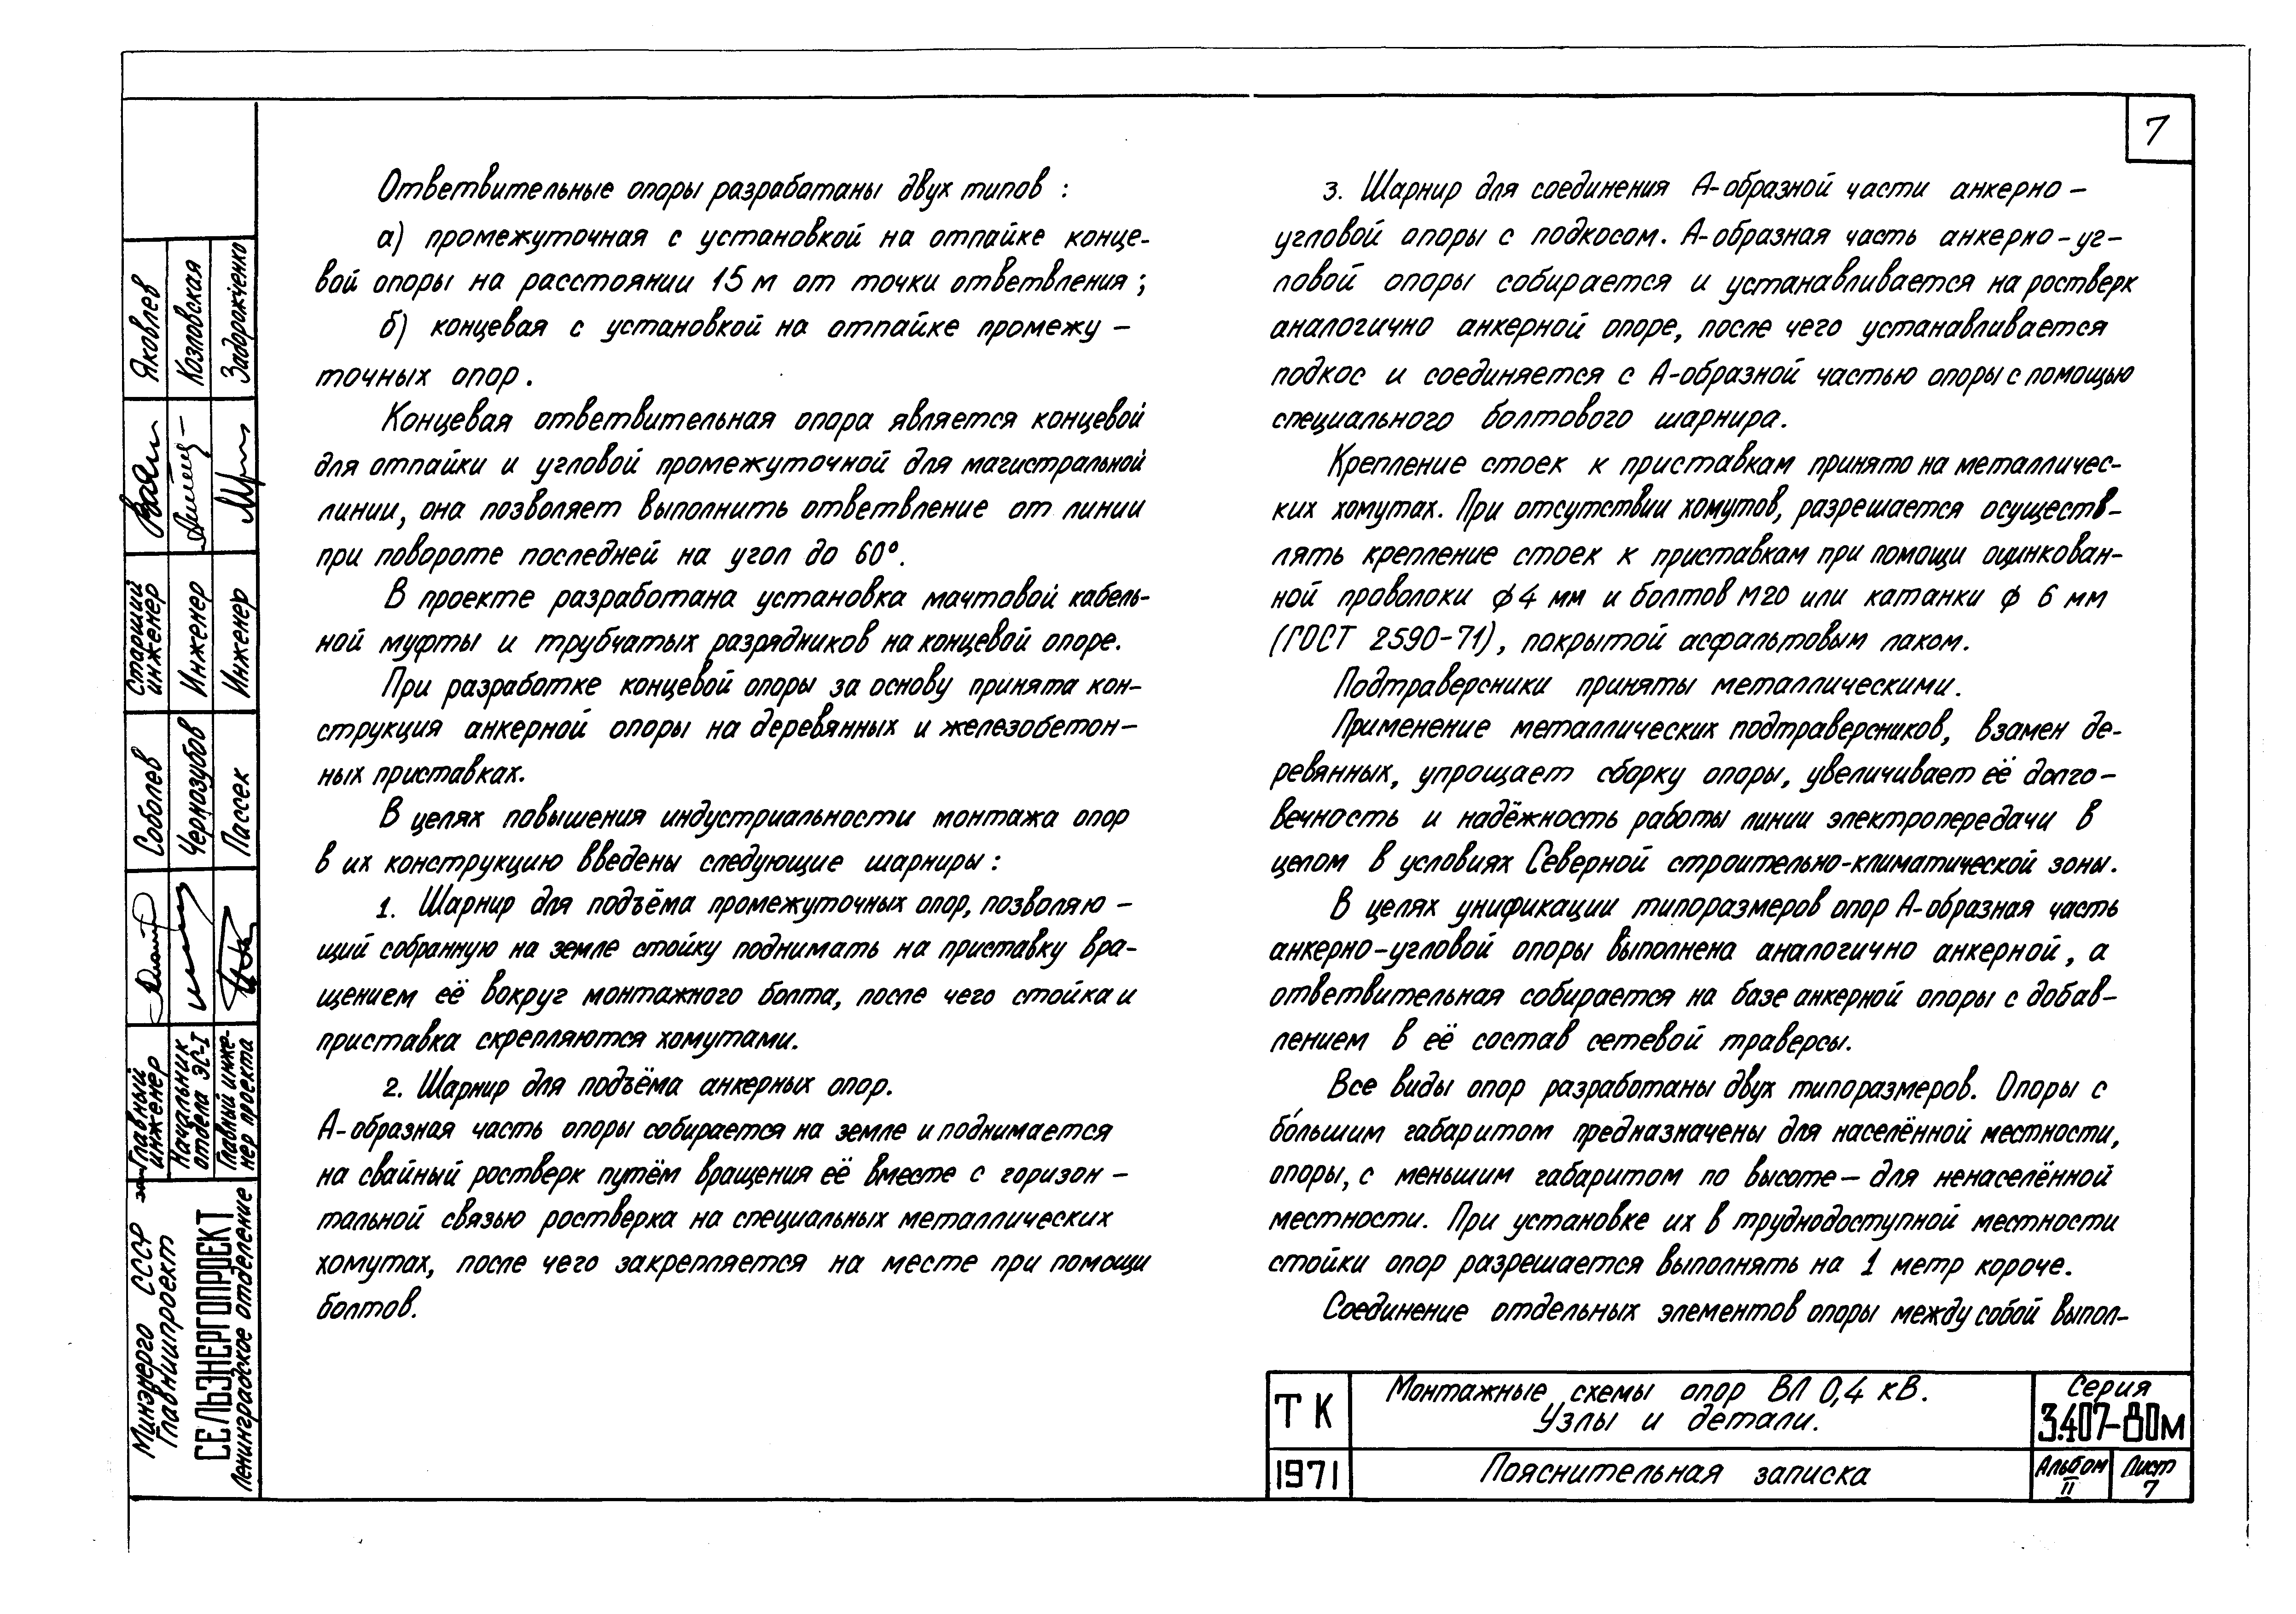 7
Ответвительные опоры разработаны двух типов :
а) промежуточная с установкой на отпайке конце-
вой опоры на расстоянии 15 м от точки ответвления ;
б) концевая с установкой на отпайке промежу –
точных опор.
Концевая ответвительная опора является концевой
для отпайки и угловой промежуточной для магистральной
линии, она позволяет выполнить ответвление от линии
при повороте последней на угол до 60°.
В проекте разработана установка мачтовой кабель-
ной муфты и трубчатых разрядников на концевой опоре.
При разработке концевой опоры за основу принята кон-
струкция анкерной опоры на деревянных и железобетон-
ных приставках.
В целях повышения индустриальности монтажа опор
в их конструкцию введены следующие шарниры :
1. Шарнир для подъёма промежуточных опор, позволяю –
щий собранную на земле стойку поднимать на приставку вра-
щением её вокруг монтажного болта, после чего стойка и
приставка скрепляются хомутами.
2. Шарнир для подъёма анкерных опор.
А-образная часть опоры собирается на земле и поднимается
на свайный ростверк путём вращения её вместе с горизон –
тальной связью ростверка на специальных металлических
хомутах, после чего закрепляется на месте при помощи
болтов.
3. Шарнир для соединения А-образной части анкерно –
угловой опоры с подкосом. А-образная часть анкерно-уг-
ловой опоры собирается и устанавливается на ростверк
аналогично анкерной опоре, после чего устанавливается
подкос и соединяется с А-образной частью опоры с помощью
специального болтового шарнира.
Крепление стоек к приставкам принято на металличес-
ких хомутах. При отсутствии хомутов, разрешается осуществ-
лять крепление стоек к приставкам при помощи оцинкован-
ной проволоки ф 4 мм и болтов М20 или катанки ф 6 мм
(ГОСТ 2590-71), покрытой асфальтовым лаком.
Подтраверсники приняты металлическими.
Применение металлических подтраверсников, взамен де-
ревянных, упрощает сборку опоры, увеличивает её долго-
вечность и надёжность работы линии электропередачи в
целом в условиях Северной строительно-климатической зоны.
В целях унификации типоразмеров опор А-образная часть
анкерно-угловой опоры выполнена аналогично анкерной, а
ответвительная собирается на базе анкерной опоры с добав-
лением в её состав сетевой траверсы.
Все виды опор разработаны двух типоразмеров. Опоры с
бо́льшим габаритом предназначены для населённой местности,
опоры, с меньшим габаритом по высоте – для ненаселённой
местности. При установке их в труднодоступной местности
стойки опор разрешается выполнять на 1 метр короче.
Соединение отдельных элементов опоры между собой выпол-
ТК
1971
Монтажные схемы опор ВЛ 0,4 кВ.
Узлы и детали.
Пояснительная записка
Серия
3.407-80м
Альбом
II
Лист
7
Минэнерго СССР
Главниипроект
СЕЛЬЭНЕРГОПРОЕКТ
Ленинградское отделение
Главный
инженер
Соболев
Старший
инженер
Яковлев
Начальник
отдела ЭС-I
Чернозубов
Инженер
Козловская
Главный инже-
нер проекта
Пассек
Инженер
Задорожченко